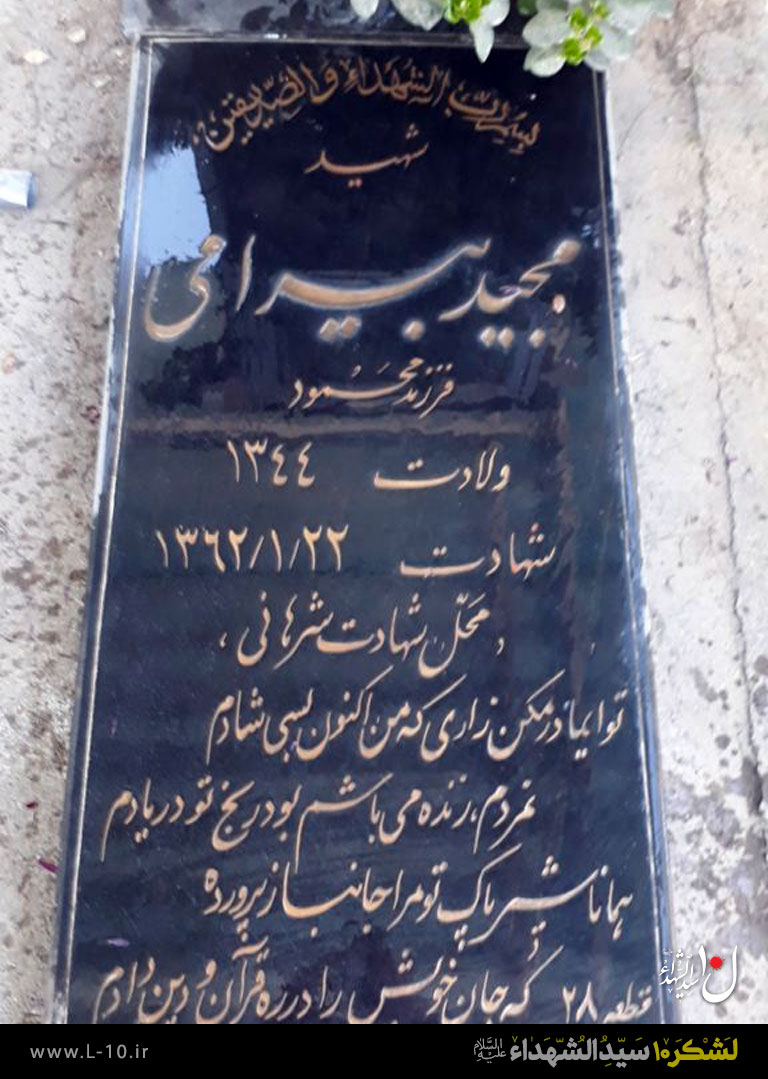 بسم رب الشهداء والصدیقین
شهید
مجید بیرامی
فرزند محمود
ولادت ۱۳۴۴
شهادت ۱۳۶۲/۱/۲۲
محلّ شهادت شرهانی
تو ای مادر مکن زاری که من اکنون بسی شادم
نمردم، زنده می باشم بود رنج تو در یادم
همانا شیر پاک تو مرا جانباز پرورده
که جان خویش را در ره قرآن و دین دادم
قطعه ۲۸
لشکر ۱۰ سیّدالشّهداء علیه السلام
www.L-10.ir